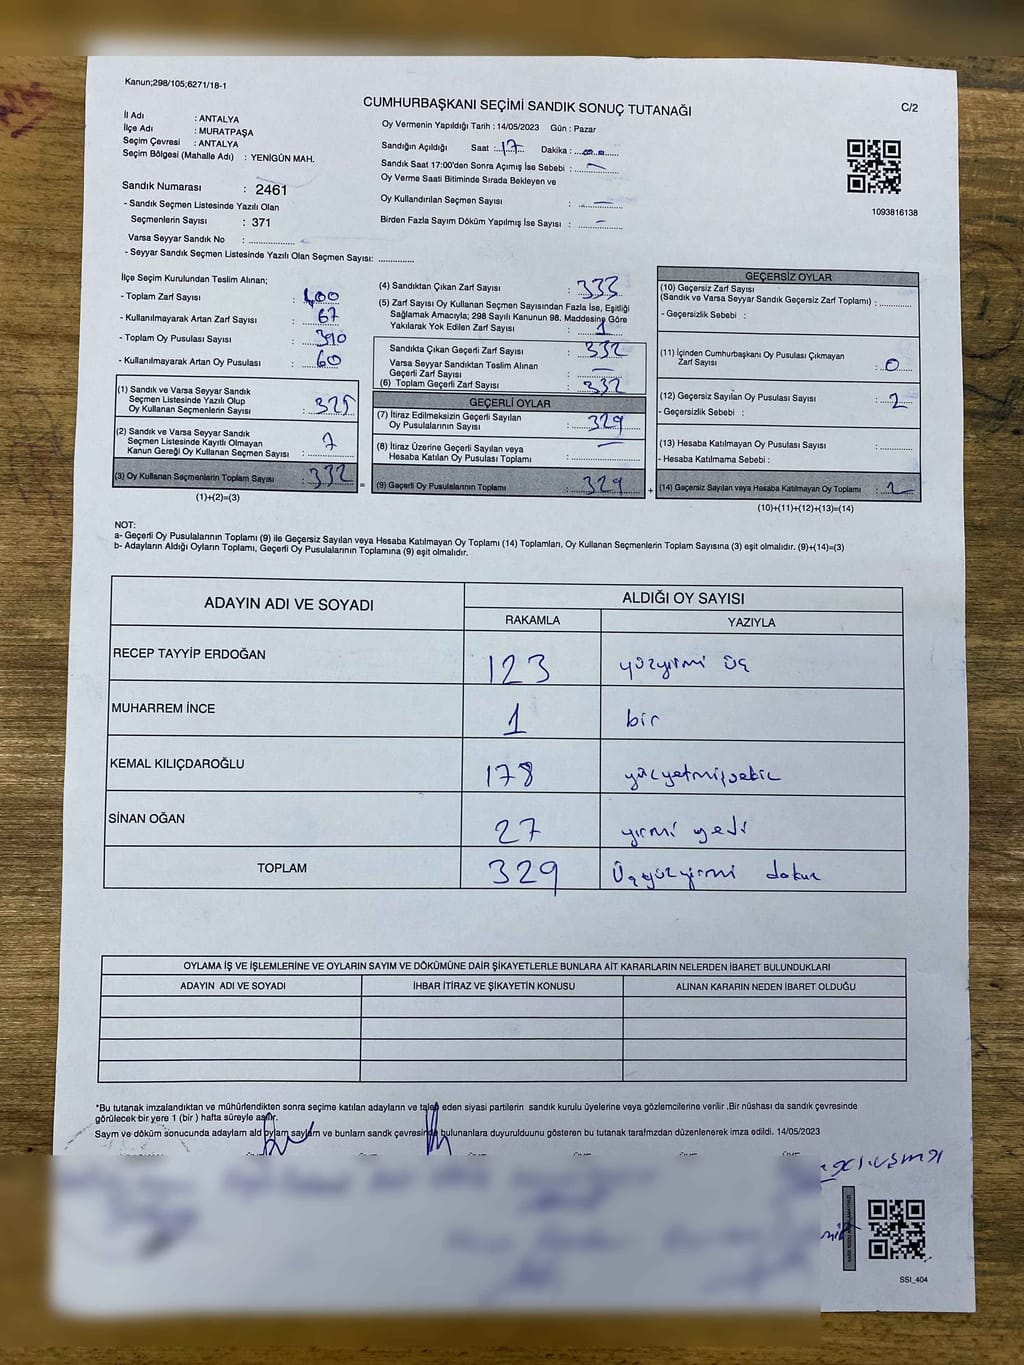 Kanun;298/105;6271/18-1
CUMHURBAŞKANI SEÇİMİ SANDIK SONUÇ TUTANAĞI
C/2
İl Adı : ANTALYA
İlçe Adı : MURATPAŞA
Seçim Çevresi : ANTALYA
Seçim Bölgesi (Mahalle Adı) : YENİGÜN MAH.
Sandık Numarası : 2461
- Sandık Seçmen Listesinde Yazılı Olan
Seçmenlerin Sayısı : 371
Varsa Seyyar Sandık No : ..............
- Seyyar Sandık Seçmen Listesinde Yazılı Olan Seçmen Sayısı: ............
Oy Vermenin Yapıldığı Tarih : 14/05/2023 Gün : Pazar
Sandığın Açıldığı Saat : 17 Dakika : 00
Sandık Saat 17:00'den Sonra Açımış İse Sebebi : —
Oy Verme Saati Bitiminde Sırada Bekleyen ve
Oy Kullandırılan Seçmen Sayısı : —
Birden Fazla Sayım Döküm Yapılmış İse Sayısı : —
1093816138
İlçe Seçim Kurulundan Teslim Alınan;
- Toplam Zarf Sayısı : 400
- Kullanılmayarak Artan Zarf Sayısı : 67
- Toplam Oy Pusulası Sayısı : 390
- Kullanılmayarak Artan Oy Pusulası : 60
(1) Sandık ve Varsa Seyyar Sandık
Seçmen Listesinde Yazılı Olup
Oy Kullanan Seçmenlerin Sayısı : 325
(2) Sandık ve Varsa Seyyar Sandık
Seçmen Listesinde Kayıtlı Olmayan
Kanun Gereği Oy Kullanan Seçmen Sayısı : 7
(3) Oy Kullanan Seçmenlerin Toplam Sayısı : 332
(1)+(2)=(3)
(4) Sandıktan Çıkan Zarf Sayısı : 333
(5) Zarf Sayısı Oy Kullanan Seçmen Sayısından Fazla İse, Eşitliği
Sağlamak Amacıyla; 298 Sayılı Kanunun 98. Maddesine Göre
Yakılarak Yok Edilen Zarf Sayısı : 1
Sandıkta Çıkan Geçerli Zarf Sayısı : 332
Varsa Seyyar Sandıktan Teslim Alınan
Geçerli Zarf Sayısı : —
(6) Toplam Geçerli Zarf Sayısı : 332
GEÇERLİ OYLAR
(7) İtiraz Edilmeksizin Geçerli Sayılan
Oy Pusulalarının Sayısı : 329
(8) İtiraz Üzerine Geçerli Sayılan veya
Hesaba Katılan Oy Pusulası Toplamı : —
= (9) Geçerli Oy Pusulalarının Toplamı : 329
GEÇERSİZ OYLAR
(10) Geçersiz Zarf Sayısı
(Sandık ve Varsa Seyyar Sandık Geçersiz Zarf Toplamı) : ..........
- Geçersizlik Sebebi :
(11) İçinden Cumhurbaşkanı Oy Pusulası Çıkmayan
Zarf Sayısı : 0
(12) Geçersiz Sayılan Oy Pusulası Sayısı : 2
- Geçersizlik Sebebi :
(13) Hesaba Katılmayan Oy Pusulası Sayısı : ..........
- Hesaba Katılmama Sebebi :
+ (14) Geçersiz Sayılan veya Hesaba Katılmayan Oy Toplamı : 2
(10)+(11)+(12)+(13)=(14)
NOT:
a- Geçerli Oy Pusulalarının Toplamı (9) ile Geçersiz Sayılan veya Hesaba Katılmayan Oy Toplamı (14) Toplamları, Oy Kullanan Seçmenlerin Toplam Sayısına (3) eşit olmalıdır. (9)+(14)=(3)
b- Adayların Aldığı Oyların Toplamı, Geçerli Oy Pusulalarının Toplamına (9) eşit olmalıdır.
ADAYIN ADI VE SOYADI ALDIĞI OY SAYISI
RAKAMLA YAZIYLA
RECEP TAYYİP ERDOĞAN 123 yüzyirmi üç
MUHARREM İNCE 1 bir
KEMAL KILIÇDAROĞLU 178 yüzyetmişsekiz
SİNAN OĞAN 27 yirmi yedi
TOPLAM 329 Üçyüzyirmi dokuz
OYLAMA İŞ VE İŞLEMLERİNE VE OYLARIN SAYIM VE DÖKÜMÜNE DAİR ŞİKAYETLERLE BUNLARA AİT KARARLARIN NELERDEN İBARET BULUNDUKLARI
ADAYIN ADI VE SOYADI İHBAR İTİRAZ VE ŞİKAYETİN KONUSU ALINAN KARARIN NEDEN İBARET OLDUĞU
*Bu tutanak imzalandıktan ve mühürlendikten sonra seçime katılan adayların ve talep eden siyasi partilerin sandık kurulu üyelerine veya gözlemcilerine verilir .Bir nüshası da sandık çevresinde
görülecek bir yere 1 (bir ) hafta süreyle asılır.
Sayım ve döküm sonucunda adaylam ald oylam saylam ve bunlam sandk çevresinde bulunanlara duyurulduunu gösteren bu tutanak tarafmzdan düzenlenerek imza edildi. 14/05/2023
SSI_404